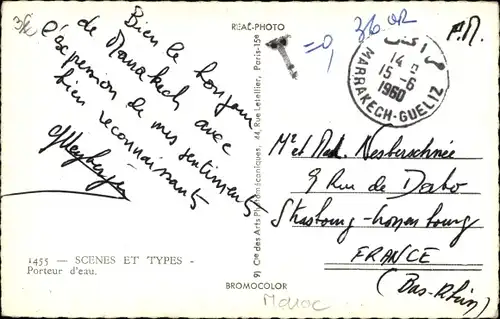 REAL-PHOTO
Bien le bonjour
de Marrakech avec
l'expression de mes sentiments
bien reconnaissants
1455 — SCENES ET TYPES -
Porteur d'eau.
9) Cie des Arts Photomécaniques, 44, Rue Letellier, Paris-15e
BROMOCOLOR
Maroc
T
=0,
36
P.M.
مراكش
14
15-6
1960
MARRAKECH-GUELIZ
Mr et Mad. Nesberschnée
9 Rue de Dabo
Strasbourg
FRANCE
(Bas-Rhin)